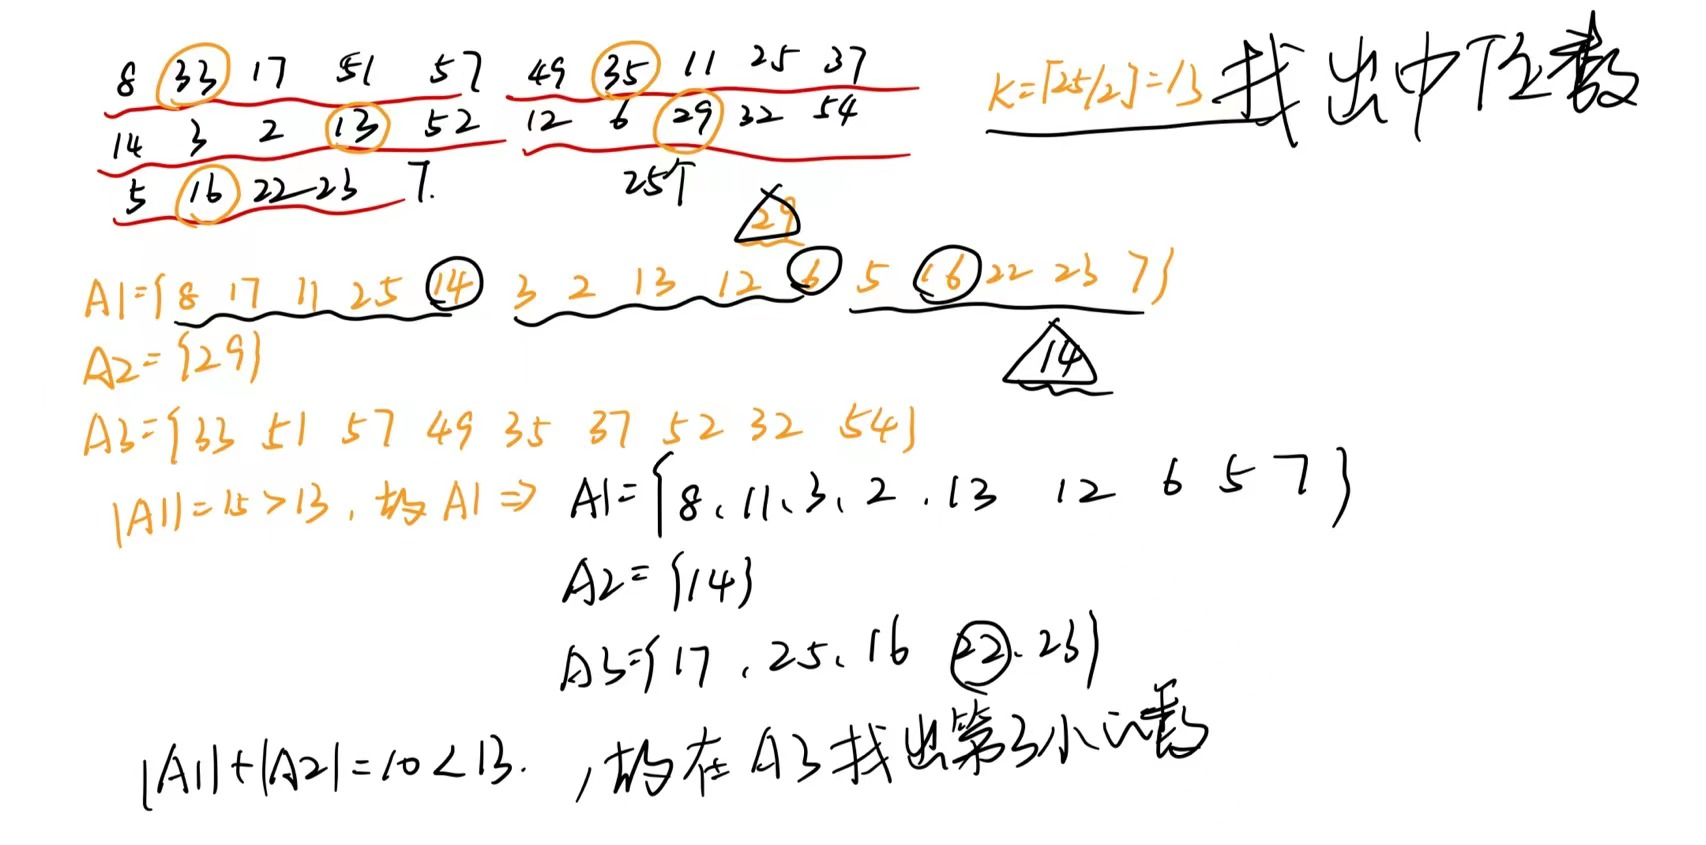 8 33 17 51 57 49 35 11 25 37
K=⌈25/2⌉=13 找出中位数
14 3 2 13 52 12 6 29 32 54
5 16 22 23 7. 25个
29
A1={8 17 11 25 14 3 2 13 12 6 5 16 22 23 7}
A2={29}
14
A3={33 51 57 49 35 37 52 32 54}
|A1|=15>13, 故A1⇒ A1={8、11、3、2、13 12 6 5 7}
A2={14}
A3={17、25、16 22、23}
|A1|+|A2|=10<13. ,故在A3找出第3小的数